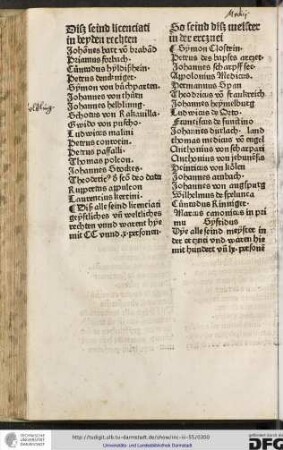 Disz seind licenciati
in beyden rechten
Johānes hatt vō brabād
Priamus forbach.
Cūnradus hyldisheim.
Petrus denhniger.
Symon von büchparten.
Johannes von thüm
Johannes helblinng.
Schotus von Rakauilla.
Gwido von puscho.
Ludwicus malini
Petrus contrein.
Petrus passalli.
Thomas poleon.
Johannes Stockes.
Theodericꝰ d sco deo data
Rupertus appuleon
Laurencius kertini.
¶ Disz alle seind licenciati
geystliches vñ weltliches
rechten vnnd warent hye
mit CC vnnd .x. personen.
Medici
So seind disz meister
in der erczneÿ
¶ Symon Clostein.
Petrus des bapsts arczet.
Johannes scharpffsee.
Apolonius Medicus.
Hermannus Span
Theodricus vō franckreich
Johannes heymelburg
Ludwicus de Orto.
Franciscus de sumano
Johannes dürlach. land
thomas medicus vō engel
Anthonius von scharpani
Anthonius von jehunesia
Heinricus von kölen
Johannes ambach.
Johannes von augspurg
Wilhelmus de spelunca
Cūnradus Kinniger.
Marcus canonicus in pri
mu Syfridus
Dye alle seind meyster in
der erczneÿ vnd waren hie
mit hundert vñ lx. persone
http://tudigit.ulb.tu-darmstadt.de/show/inc-iii-55/0300
Universitäts- und Landesbibliothek Darmstadt
DFG